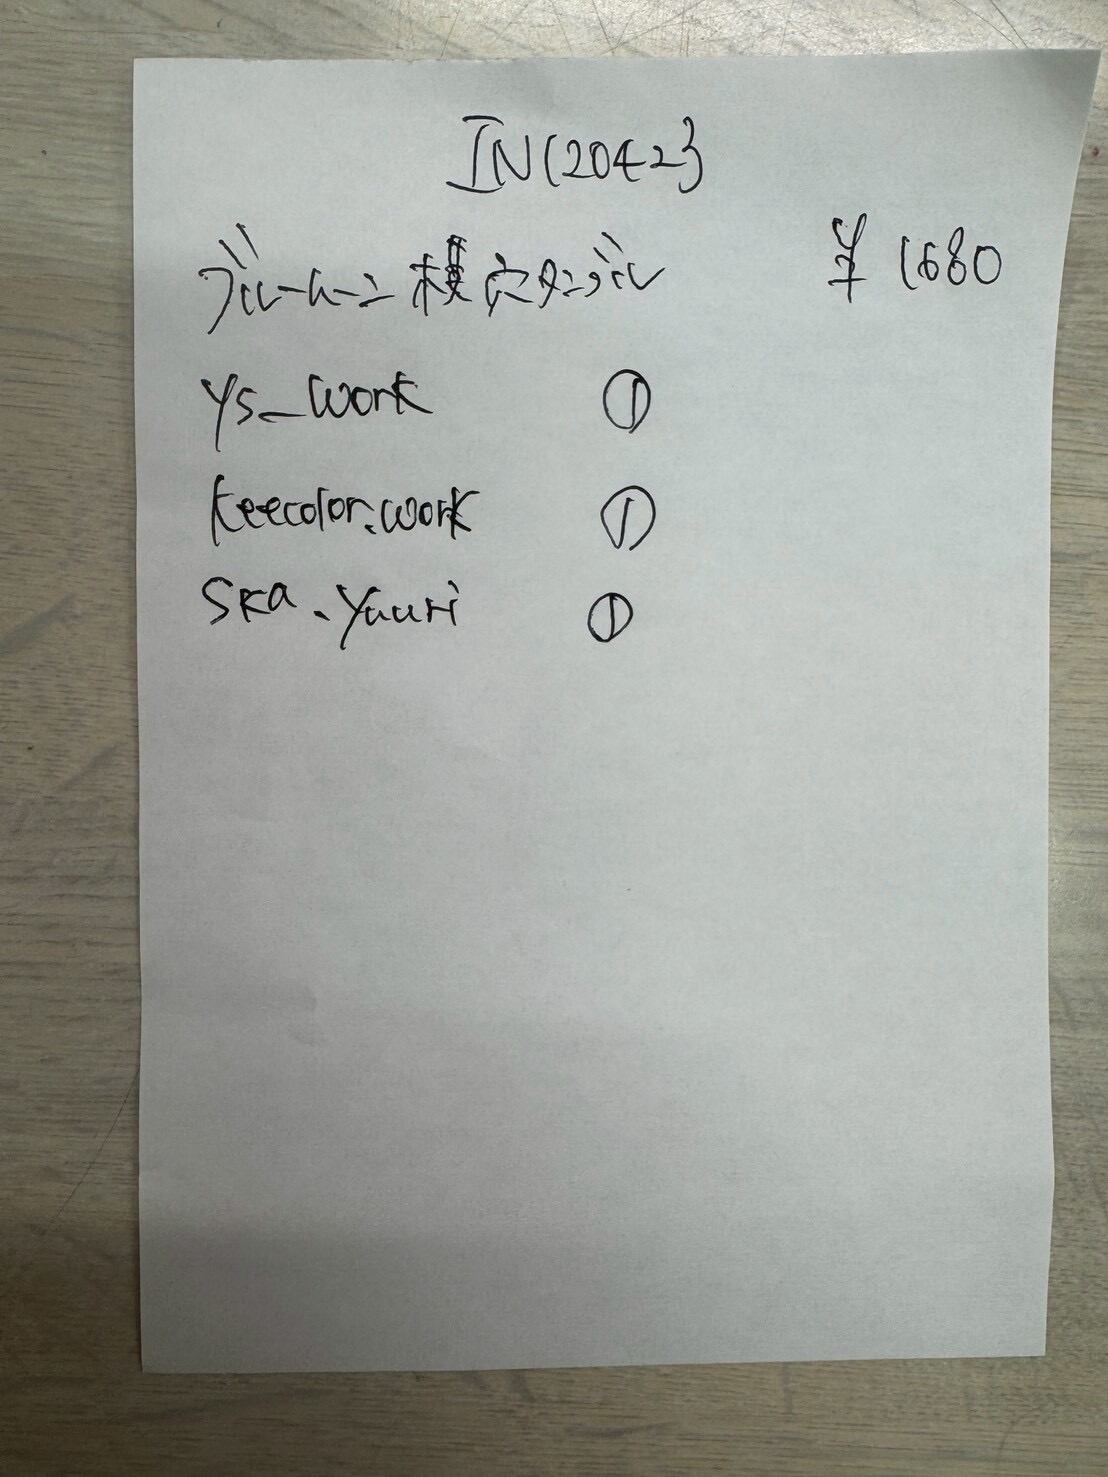 IN(2042)
ブルームーン横穴タンブル ¥1680
ys_work ①
keecolor.work ①
ska.yuuri ①